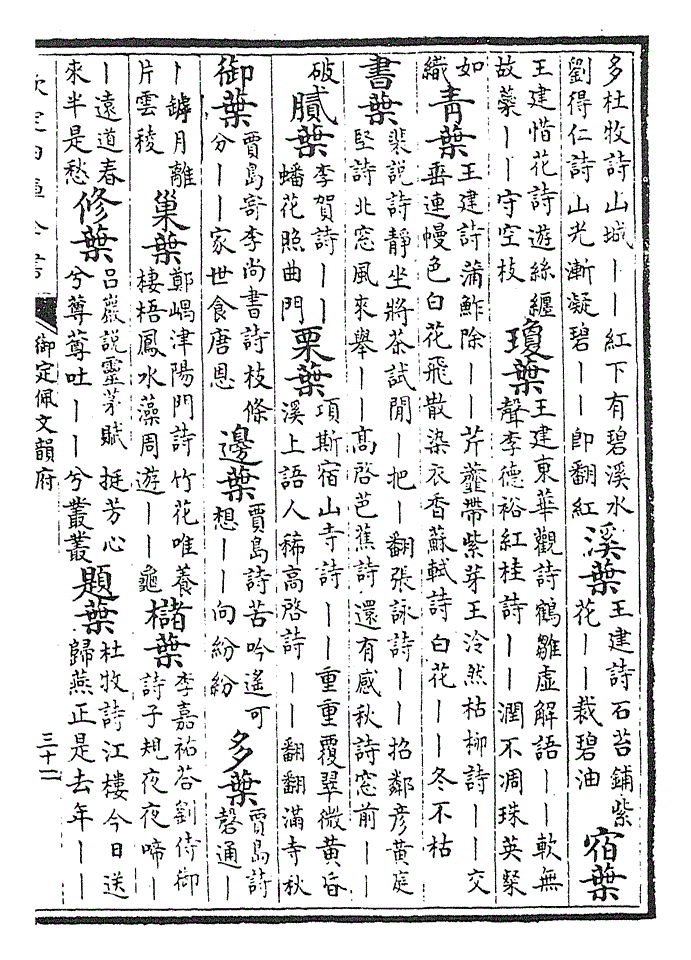 多杜牧詩山城丨丨紅下有碧溪水
劉得仁詩山光漸凝碧丨丨即翻紅
溪葉
王建詩石苔鋪紫
花丨丨裁碧油
宿葉
王建惜花詩遊絲纏
故蘂丨丨守空枝
瓊葉
王建東華觀詩鶴雛虛解語丨丨軟無
聲李德裕紅桂詩丨丨潤不凋珠英粲
如
織
青葉
王建詩蒲鮓除丨丨芹虀帶紫芽王泠然枯柳詩丨丨交
垂連幔色白花飛散染衣香蘇軾詩白花丨丨冬不枯
書葉
裴説詩靜坐將茶試閒丨把丨翻張詠詩丨丨招鄰彥黃庭
堅詩北窓風來舉丨丨高啓芭蕉詩還有感秋詩窓前丨丨
破
膩葉
李賀詩丨丨
蟠花照曲門
栗葉
項斯宿山寺詩丨丨重重覆翠微黃昏
溪上語人稀高啓詩丨丨翻翻滿寺秋
御葉
賈島寄李尚書詩枝條
分丨丨家世食唐恩
邊葉
賈島詩苦吟遙可
想丨丨向紛紛
多葉
賈島詩
磬通丨
丨罅月離
片雲稜
巢葉
鄭嵎津陽門詩竹花唯養
棲梧鳳水藻周遊丨丨龜
櫧葉
李嘉祐荅劉侍御
詩子規夜夜啼丨
丨遠道春
來半是愁
修葉
呂巖説靈茅賦挺芳心
兮蓴蓴吐丨丨兮叢叢
題葉
杜牧詩江樓今日送
歸燕正是去年丨丨
欽定四庫全書
御定佩文韻府
三十二